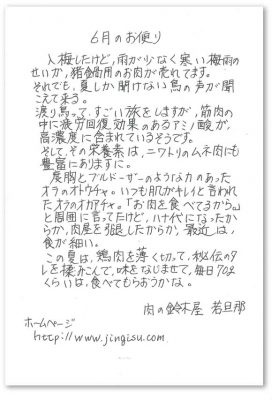 6月のお便り
入梅したけど、雨が少なく寒い梅雨の
せいか、猪鍋用のお肉が売れてます。
それでも、夏しか聞けない鳥の声が聞
こえて来る。
渡り鳥って、すごい旅をしますが、筋肉の
中に疲労回復効果のあるアミノ酸が、
高濃度に含まれているそうです。
そして、その栄養素は、ニワトリのムネ肉にも
豊富にありますに。
鹿胸とブルドーザーのような力のあった
オラのオトウチャ。いつも肌がキレイと言われ
たオラのオカアチャ。「お肉を食べてるから。」
と周囲に言ってたけど、八十代になったか
らか、肉屋を引退したからか、最近は、
食が細い。
この夏は、鶏肉を薄く切って、秘伝のタ
レを揉みこんで、味をなじませて、毎日70g
くらいは、食べてもらおうかな。
肉の鈴木屋 若旦那
ホームページ
http://www.jingisu.com